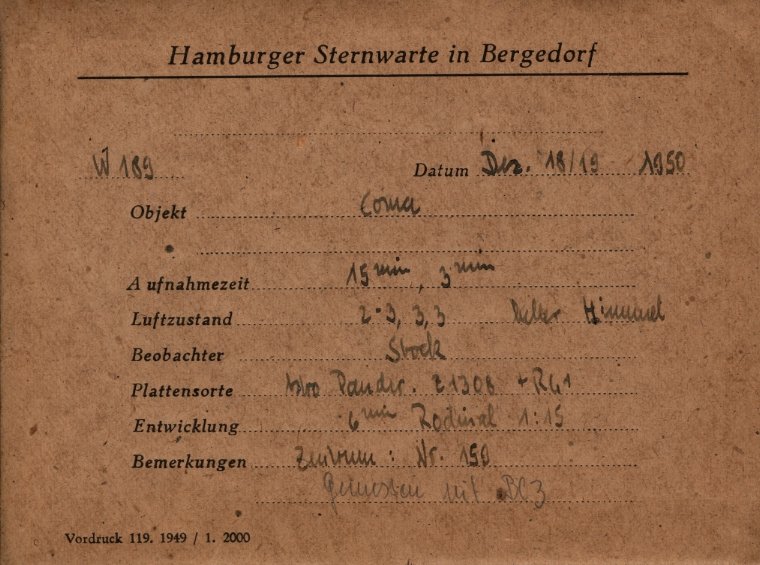 Hamburger Sternwarte in Bergedorf
W 189 Datum Dez. 18/19 1950
Objekt Coma
Aufnahmezeit 15 min, 3 min
Luftzustand 2-3, 3, 3 Himmel
Beobachter Stock
Plattensorte Astro 21308 + RG1
Entwicklung 6 min Rodinal 1:15
Bemerkungen Zentrum: Nr. 150
Gemessen mit
Vordruck 119. 1949 / 1. 2000